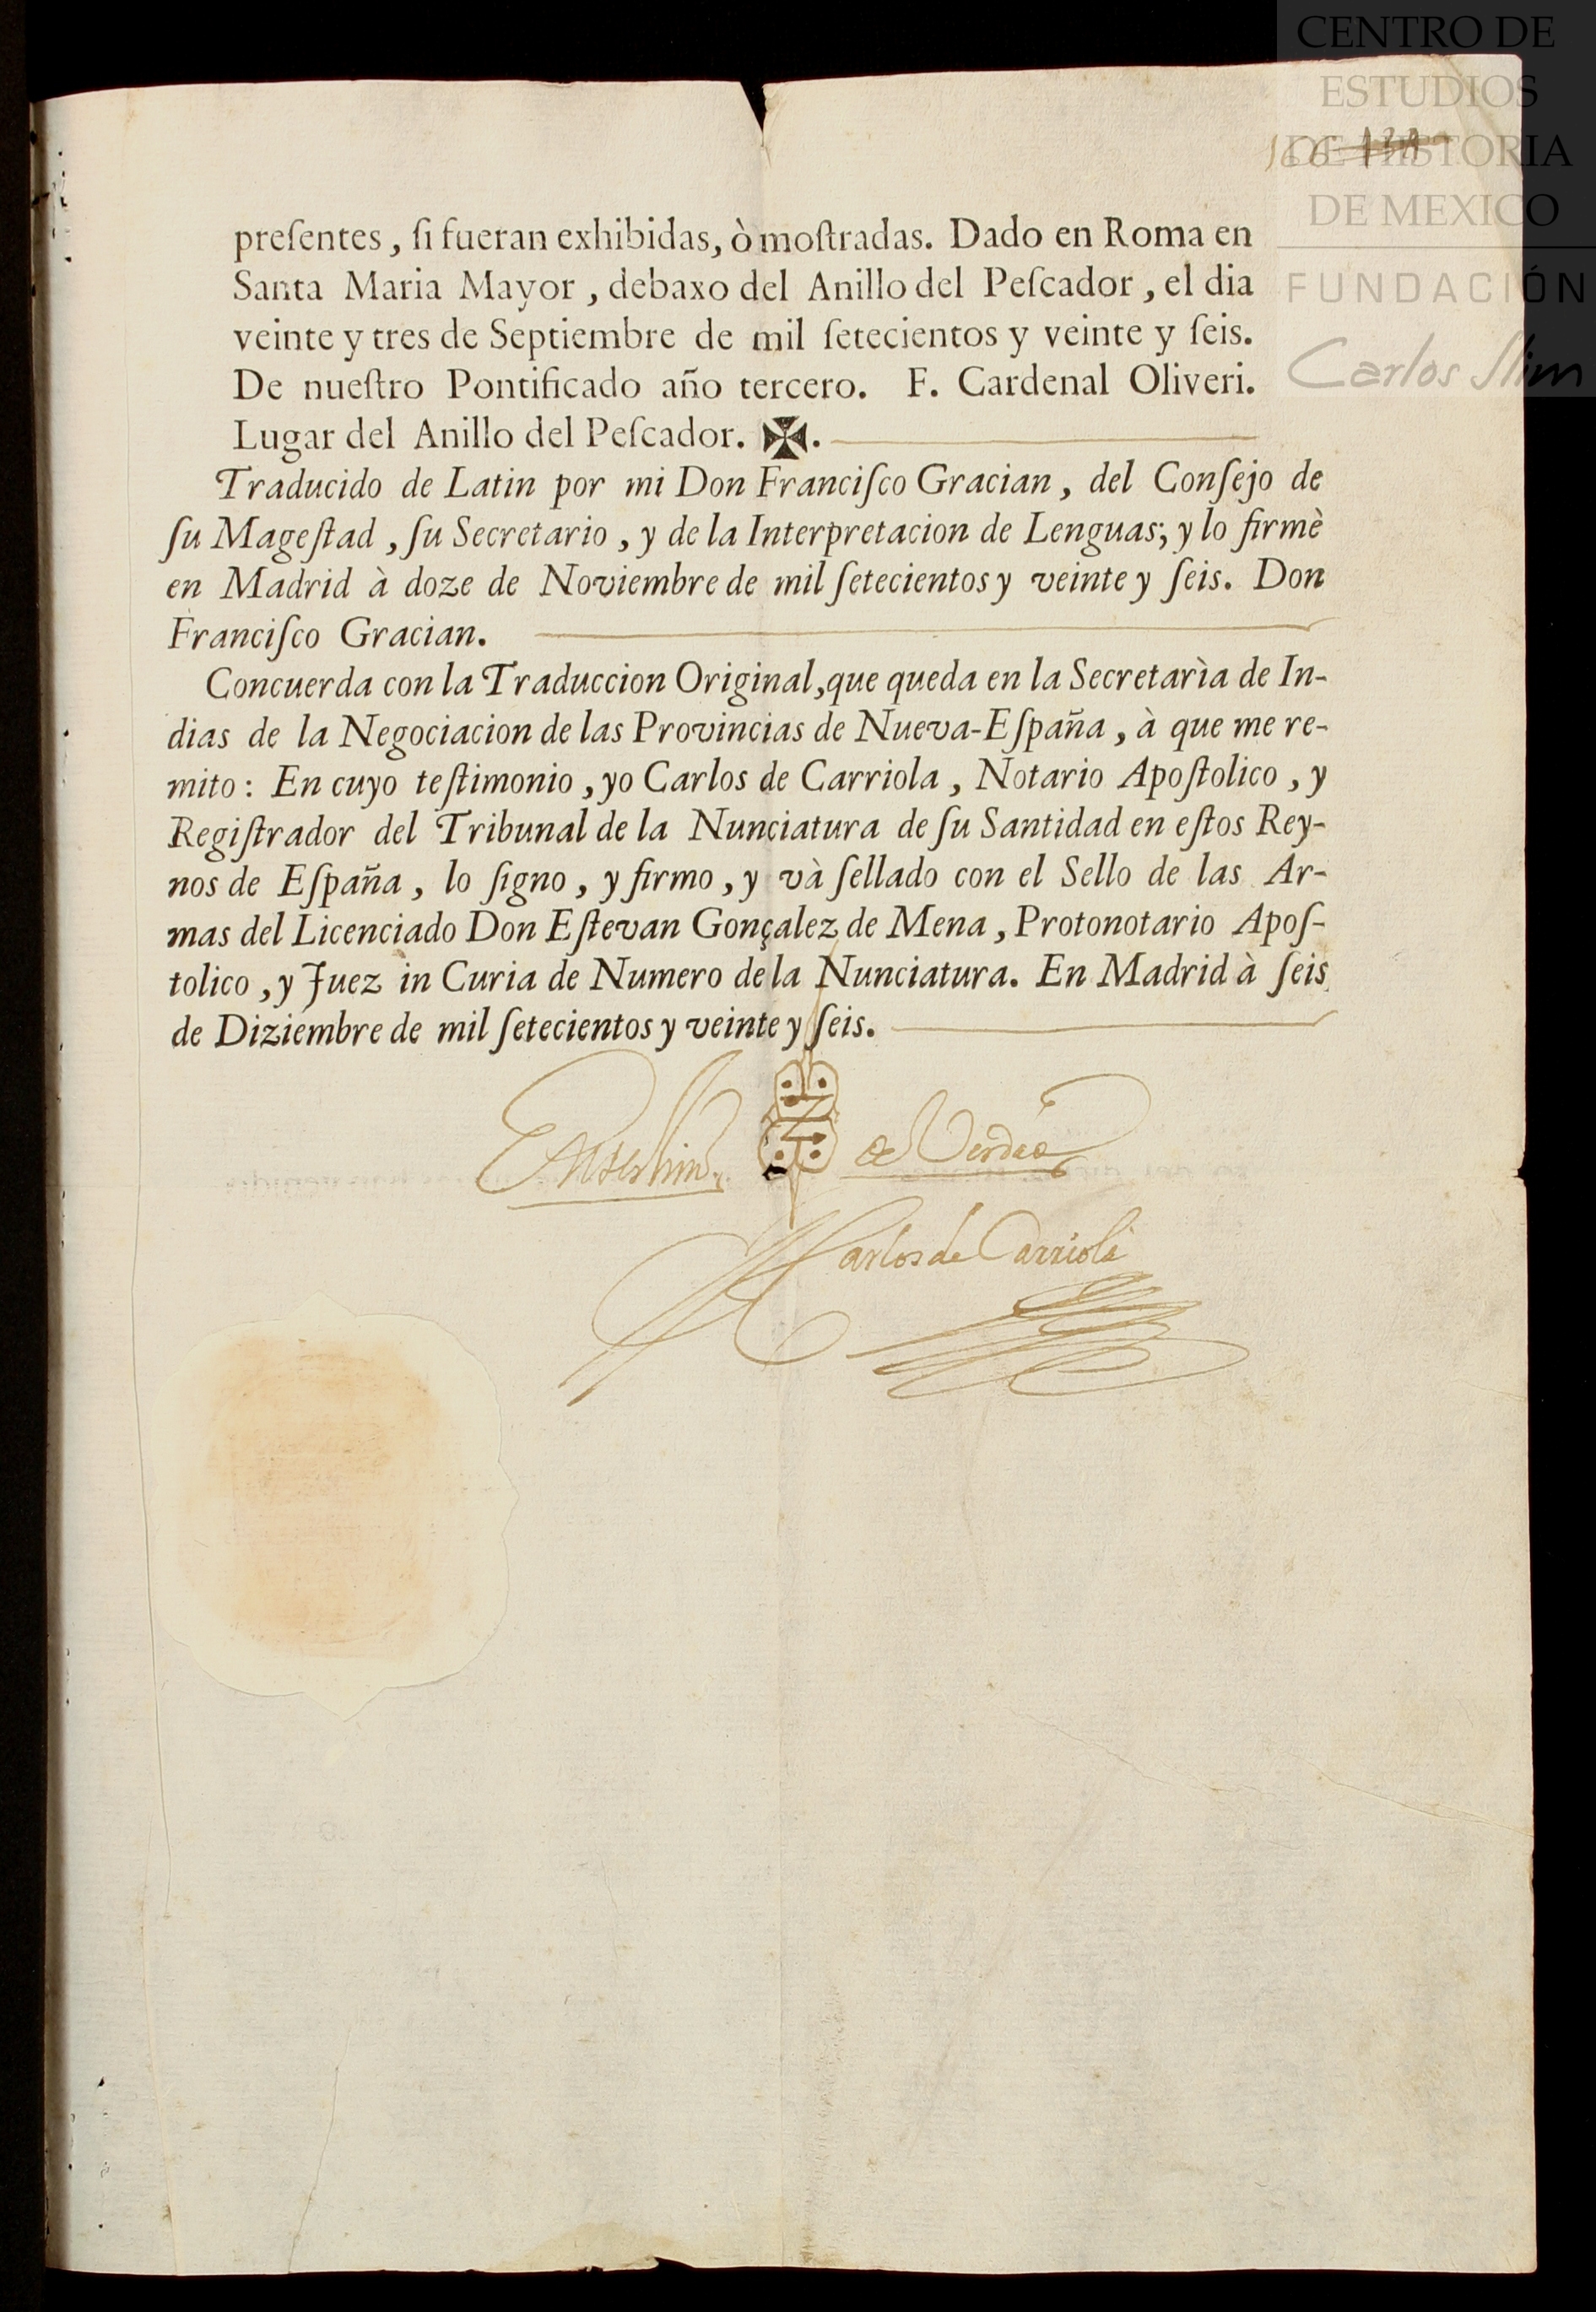 CENTRO DE
ESTUDIOS
DE HISTORIA
DE MEXICO
FUNDACIÓN
Carlos Slim
166
preſentes, ſi fueran exhibidas, ò moſtradas. Dado en Roma en
Santa Maria Mayor, debaxo del Anillo del Peſcador, el dia
veinte y tres de Septiembre de mil ſetecientos y veinte y ſeis.
De nueſtro Pontificado año tercero. F. Cardenal Oliveri.
Lugar del Anillo del Peſcador. ✠.
Traducido de Latin por mi Don Franciſco Gracian, del Conſejo de
ſu Mageſtad, ſu Secretario, y de la Interpretacion de Lenguas; y lo firmè
en Madrid à doze de Noviembre de mil ſetecientos y veinte y ſeis. Don
Franciſco Gracian.
Concuerda con la Traduccion Original, que queda en la Secretarìa de In-
dias de la Negociacion de las Provincias de Nueva-Eſpaña, à que me re-
mito: En cuyo teſtimonio, yo Carlos de Carriola, Notario Apoſtolico, y
Regiſtrador del Tribunal de la Nunciatura de ſu Santidad en eſtos Rey-
nos de Eſpaña, lo ſigno, y firmo, y và ſellado con el Sello de las Ar-
mas del Licenciado Don Eſtevan Gonçalez de Mena, Protonotario Apoſ-
tolico, y Juez in Curia de Numero de la Nunciatura. En Madrid à ſeis
de Diziembre de mil ſetecientos y veinte y ſeis.
En testim.º de Verdad
Carlos de Carriola